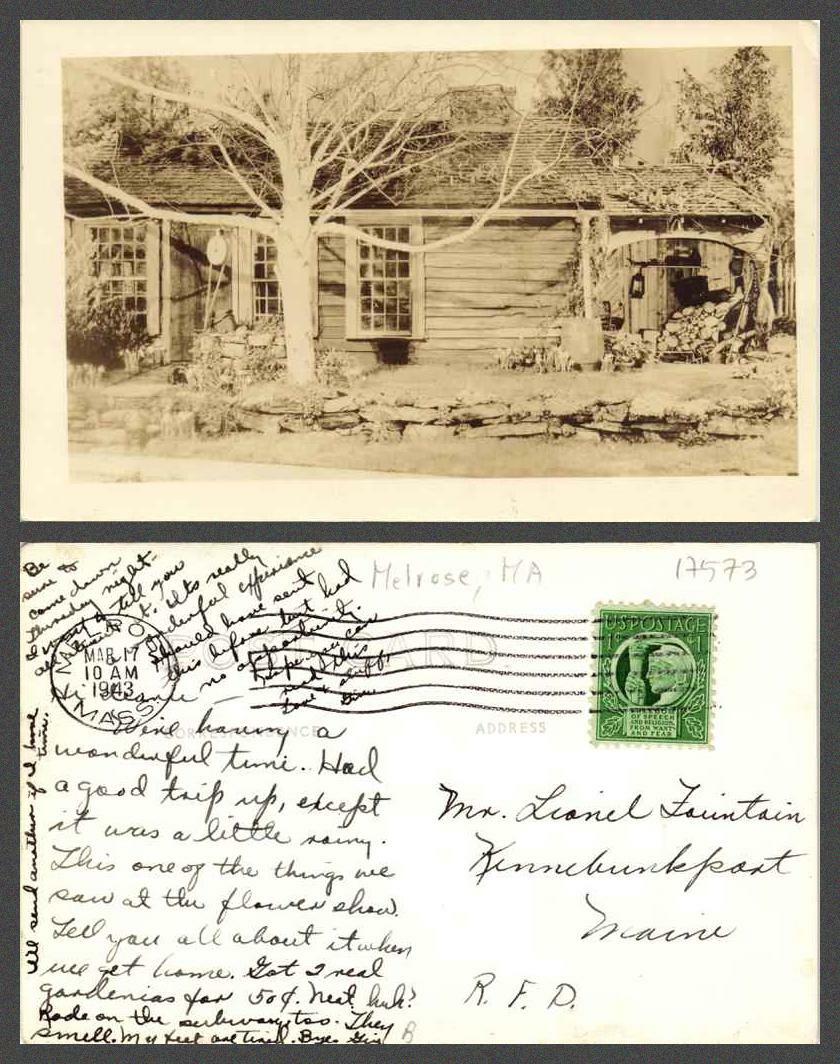 Be
sure to
come down
Thursday night.
I want to tell you
all about it. Its really
wonderful experience
Should have sent
this before but had
no opportunity.
Hope you can
read this
Love &
Melrose, MA
17573
MELRO
MAR 17
10 AM
1943
MASS.
POST CARD
CORRESPONDENCE
ADDRESS
US POSTAGE
1¢ 1
FREEDOM
OF SPEECH
AND RELIGION,
FROM WANT
AND FEAR
We're having a
wonderful time. Had
a good trip up, except
it was a little rainy.
This one of the things we
saw at the flower show.
Tell you all about it when
we get home. Got 2 real
gardenias for 50¢. Neat. huh?
Rode on the subway, too. They
smell. My feet are tired. Bye
B
I'll send another if I have
time.
Mr. Lionel Fountain
Kennebunkport
Maine
R. F. D.